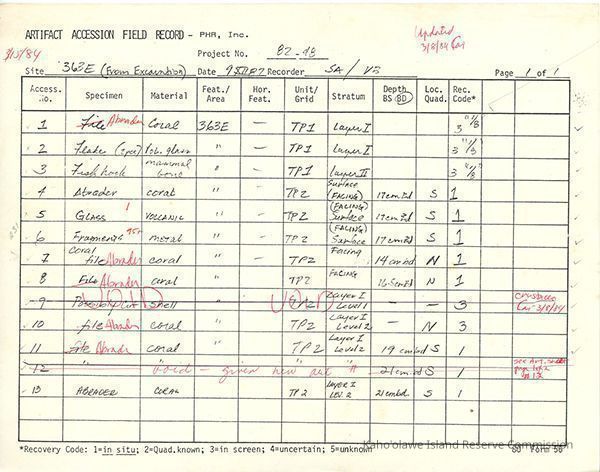 ARTIFACT ACCESSION FIELD RECORD - PHR, Inc.
Updated
3/8/84
3/15/84
Project No. 82-93
Site 363E (From Excavation) Date Recorder SA / VB Page 1 of 1
Access. No. Specimen Material Feat./ Area Hor. Feat. Unit/ Grid Stratum Depth BS BD Loc. Quad. Rec. Code*
1 File Abrader Coral 363E — TP1 Layer I 3 1/8"
2 Flake glass " — TP1 Layer I 3 1/8"
3 Fish hook mammal bone " — TP1 Layer II 3 1/8"
4 Abrader coral " — TP2 Surface (FACING) 17cmbd S 1
5 Glass 1 VOLCANIC " — TP2 (FACING) Surface 17cmbd S 1
6 Fragments metal " — TP2 (FACING) Surface 17cmbd S 1
7 Coral file Abrader coral " — TP2 Facing 14cmbd N 1
8 File Abrader coral " TP2 FACING 16.5cmbd N 1
9 Possibly shell VOID Layer I Level 1 — — 3 crustacea 3/8/84
10 file Abrader coral " TP2 Layer I Level 2 — N 3
11 file Abrader coral " TP2 Layer I Level 2 19 cmbd S 1
12 " Void - given new " 21cmbd S 1 see Art.
13 ABRADER CORAL TP2 LAYER I LEV. 2 21cmbd S 1
*Recovery Code: 1=in situ; 2=Quad.known; 3=in screen; 4=uncertain; 5=unknown Form 50
Kaho'olawe Island Reserve Commission